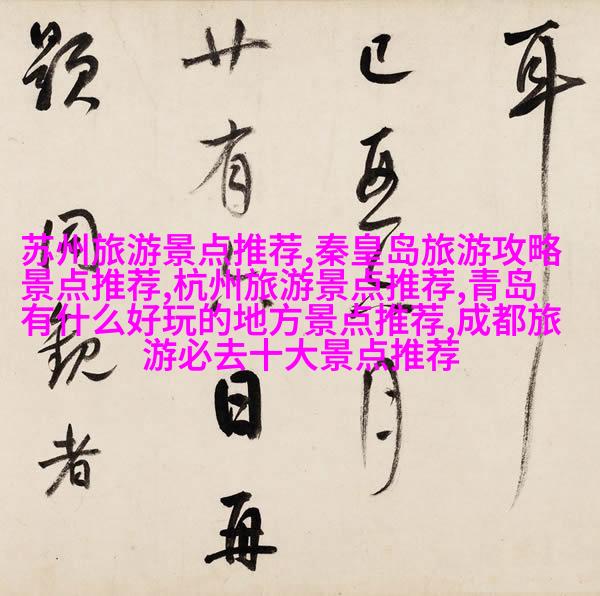 耳
月
廿有日再
題同觀者
苏州旅游景点推荐,秦皇岛旅游攻略
景点推荐,杭州旅游景点推荐,青岛
有什么好玩的地方景点推荐,成都旅
游必去十大景点推荐